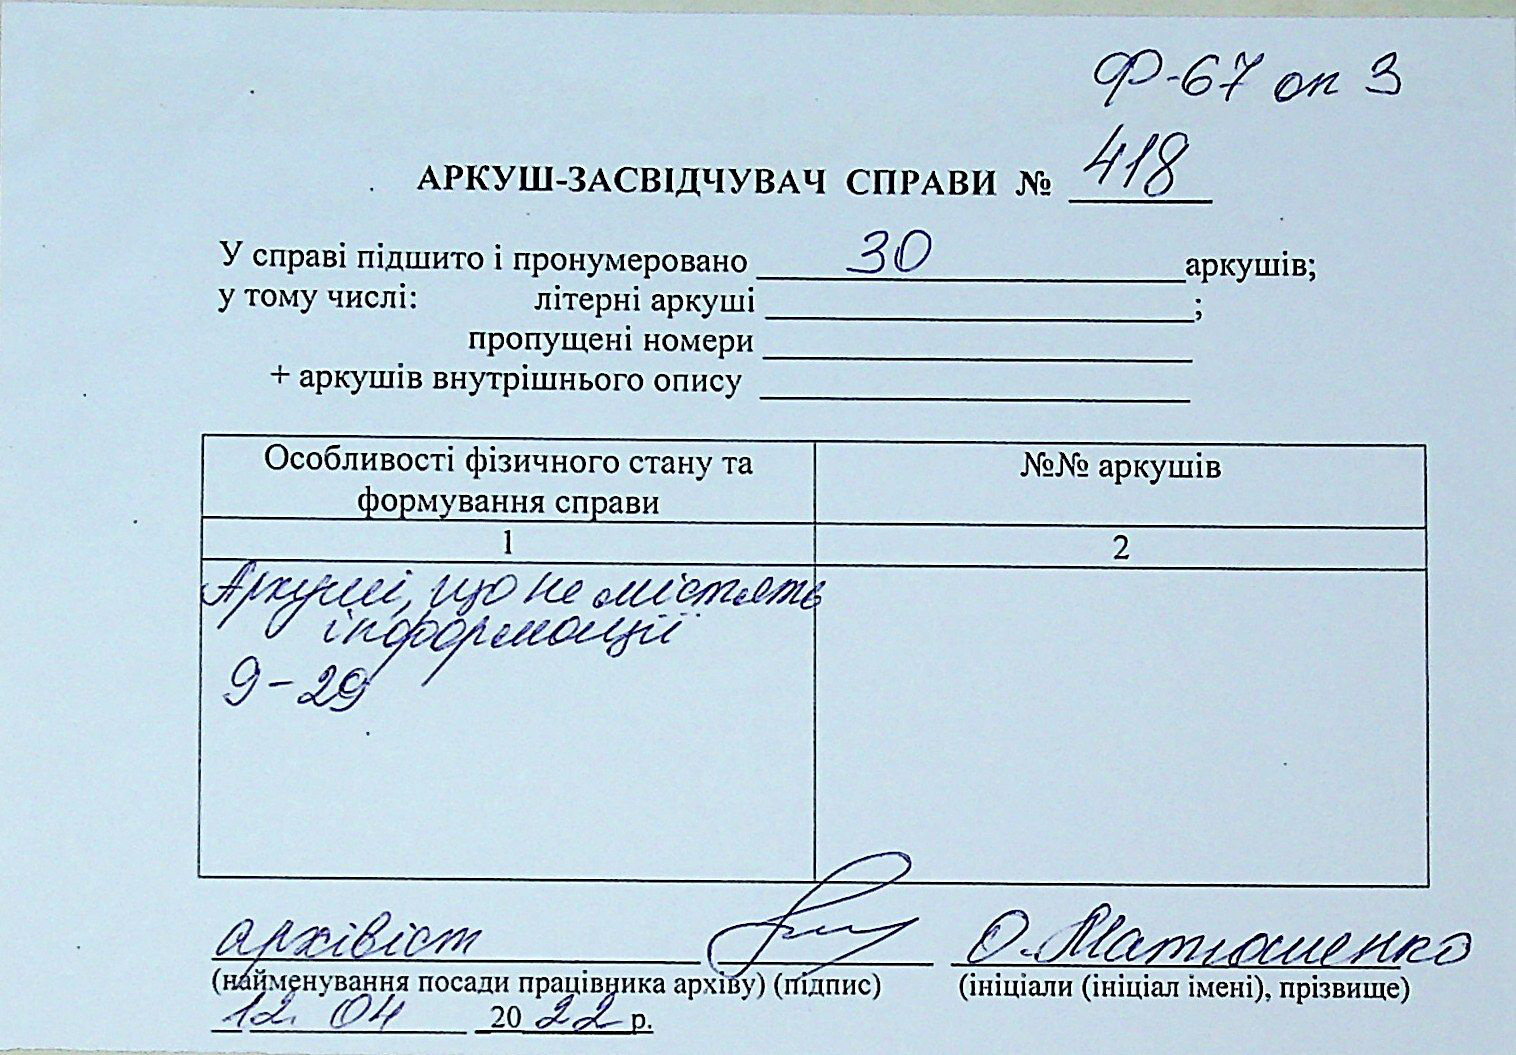 Ф-67 оп 3
АРКУШ-ЗАСВІДЧУВАЧ СПРАВИ № 418
У справі підшито і пронумеровано 30 аркушів;
у тому числі: літерні аркуші ;
пропущені номери
+ аркушів внутрішнього опису
Особливості фізичного стану та формування справи
№№ аркушів
1 2
Аркуші, що не містять
інформації
9-29
архівіст О. Матюшенко
(найменування посади працівника архіву) (підпис) (ініціали (ініціал імені), прізвище)
12. 04 2022 р.